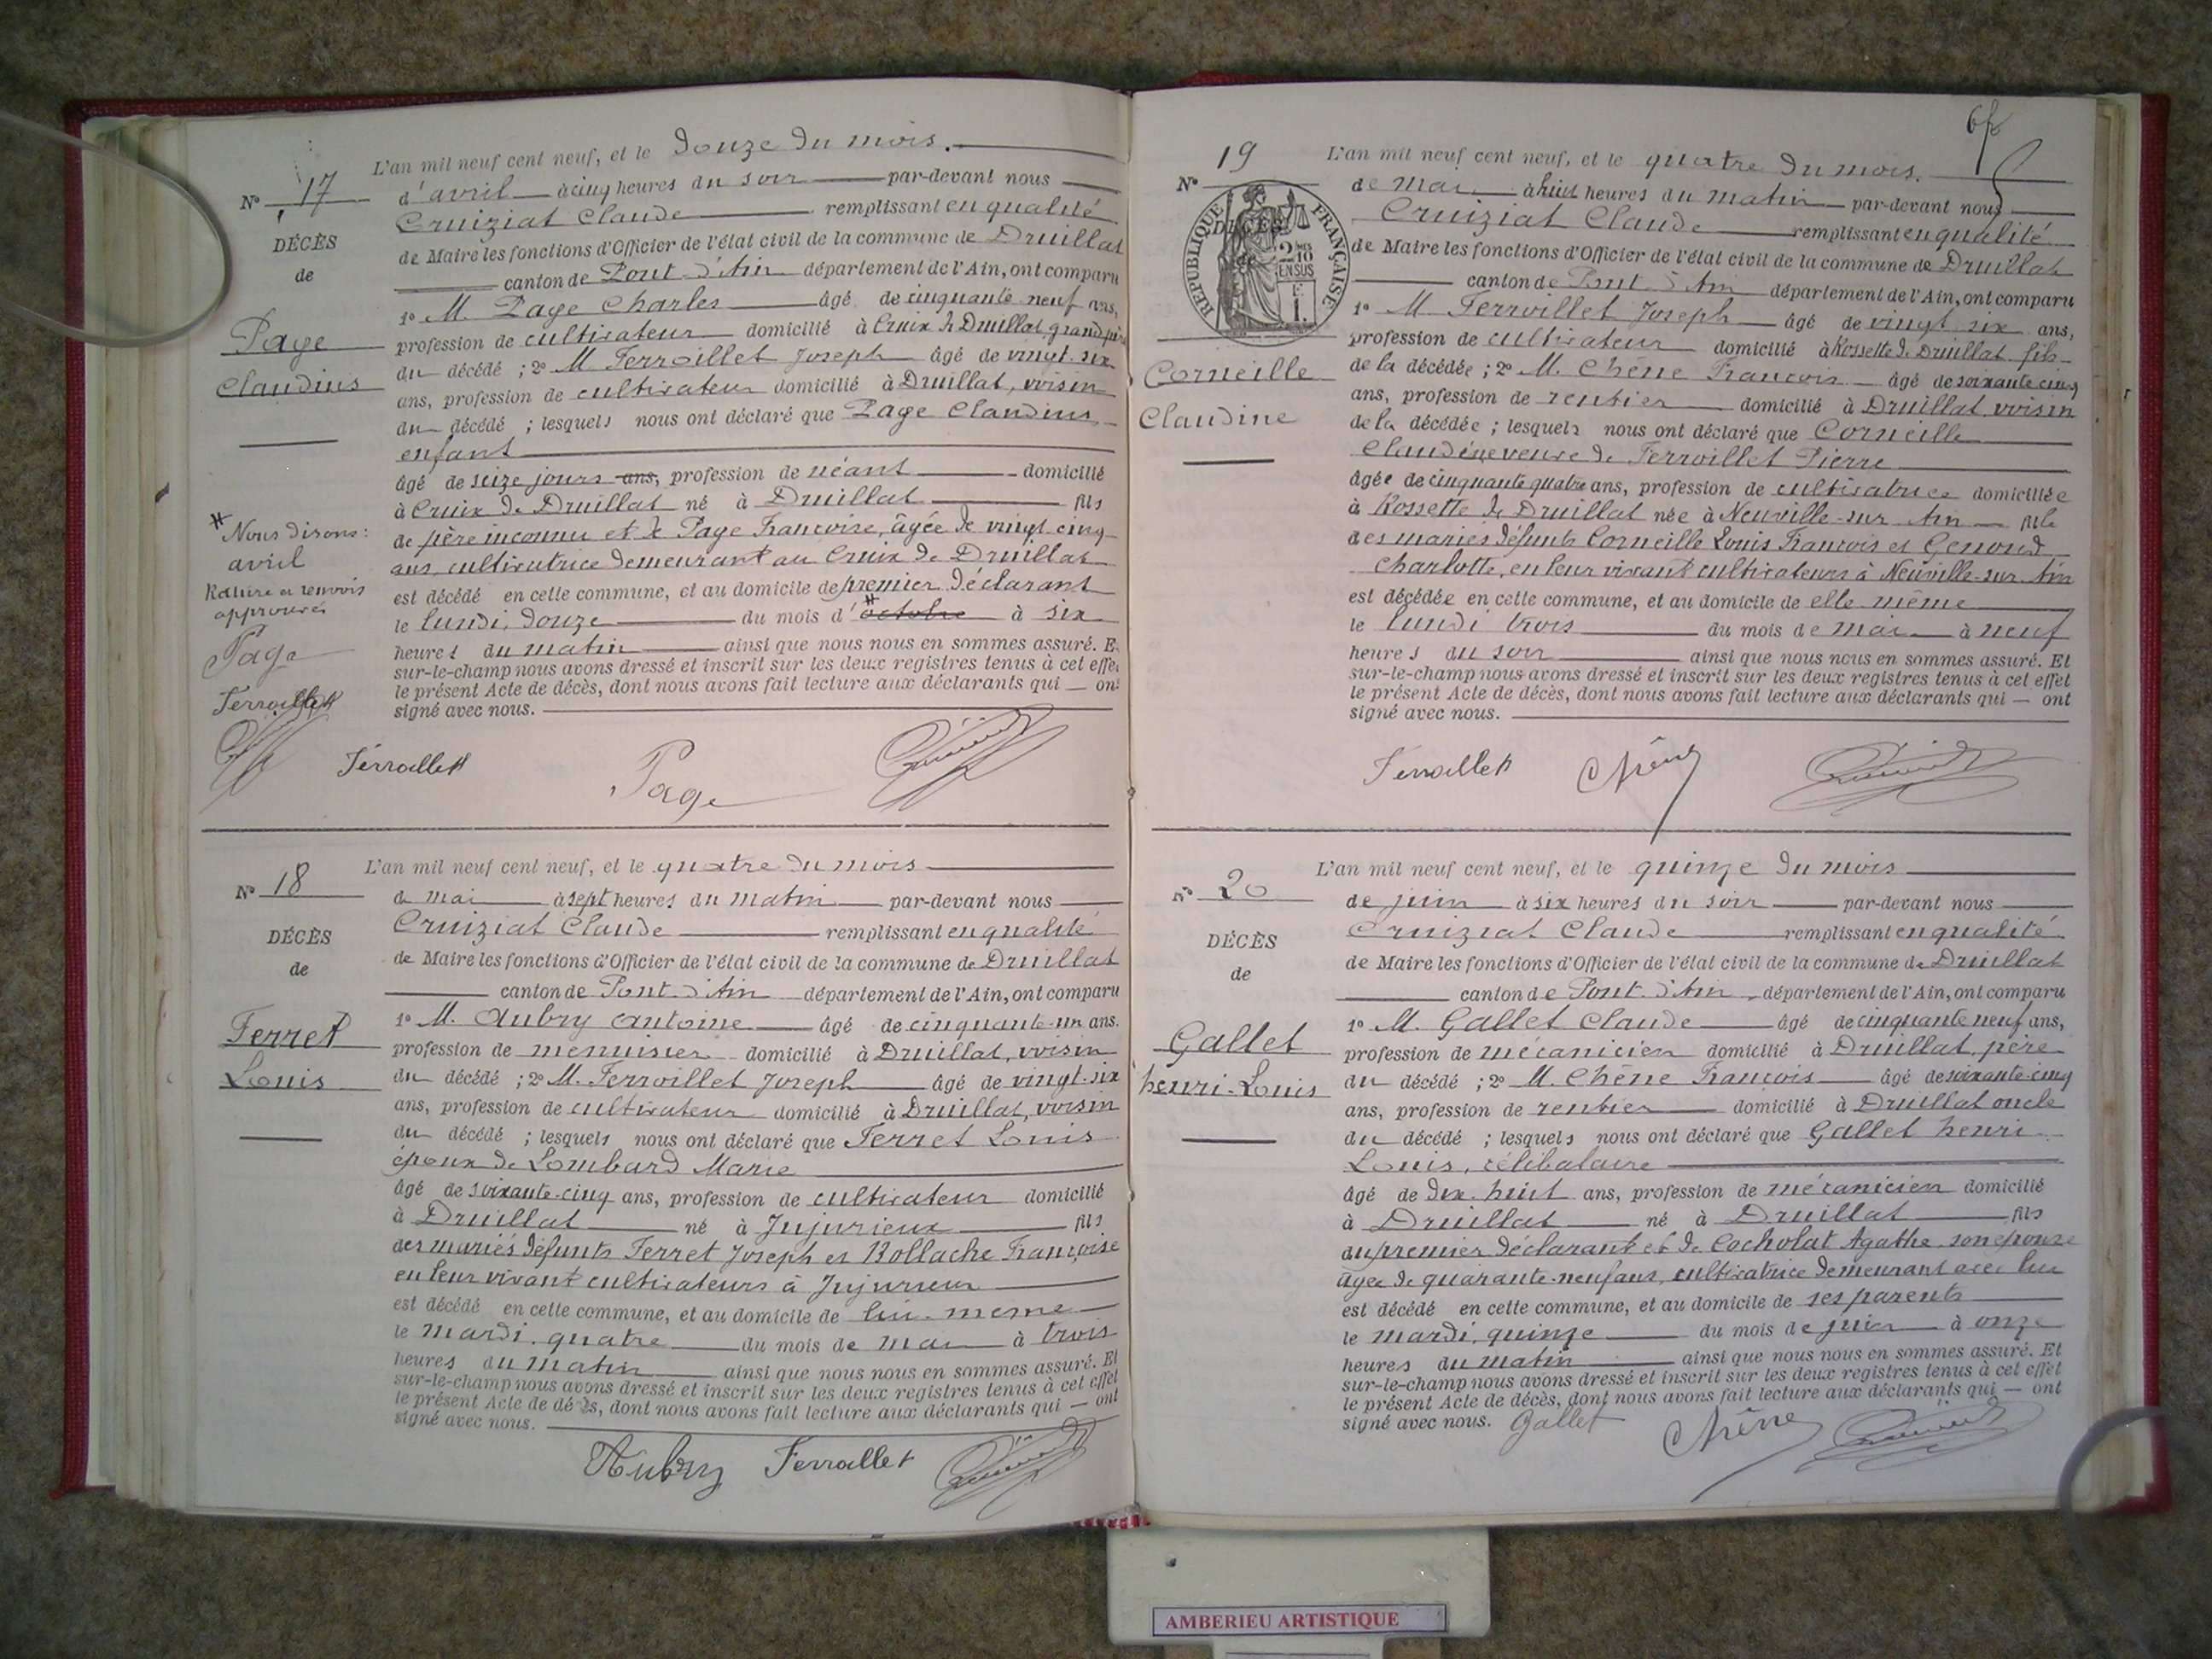 L'an mil neuf cent neuf, et le douze du mois.
N° 17
d'avril à cinq heures du soir par-devant nous
Cruiziat Claude remplissant en qualité
DÉCÈS
de Maire les fonctions d'Officier de l'état civil de la commune de Druillat
de
canton de Pont-d'Ain département de l'Ain, ont comparu
1° M. Page Charles âgé de cinquante neuf ans,
Page
profession de cultivateur domicilié à Cruix de Druillat, grand père
du décédé ; 2° M Ferroillet Joseph âgé de vingt-six
Claudius
ans, profession de cultivateur domicilié à Druillat, voisin
du décédé ; lesquels nous ont déclaré que Page Claudius,
enfant
âgé de seize jours ans, profession de néant domicilié
à Cruix de Druillat né à Druillat fils
de père inconnu et de Page Françoise, âgée de vingt cinq
ans, cultivatrice demeurant au Cruix de Druillat
est décédé en cette commune, et au domicile de premier déclarant
le lundi, douze du mois d'octobre à six
heures du matin ainsi que nous nous en sommes assuré. E
sur-le-champ nous avons dressé et inscrit sur les deux registres tenus à cet effe
le présent Acte de décès, dont nous avons fait lecture aux déclarants qui — on
signé avec nous.
Nous disons:
avril
Rature et renvois
approuvés
Page
Ferroillet
Ferroillet Page
L'an mil neuf cent neuf, et le quatre du mois
N° 18
de mai à sept heures du matin par-devant nous
Cruiziat Claude remplissant en qualité
DÉCÈS
de Maire les fonctions d'Officier de l'état civil de la commune de Druillat
de
canton de Pont-d'Ain département de l'Ain, ont comparu
1° M. Aubry Antoine âgé de cinquante-un ans.
Ferret
profession de menuisier domicilié à Druillat, voisin
Louis
du décédé ; 2° M. Ferroillet Joseph âgé de vingt-six
ans, profession de cultivateur domicilié à Druillat, voisin
du décédé ; lesquels nous ont déclaré que Ferret Louis
époux de Lombard Marie
âgé de soixante-cinq ans, profession de cultivateur domicilié
à Druillat né à Jujurieux fils
des mariés défunts Ferret Joseph et Bollache Françoise
en leur vivant cultivateurs à Jujurieux
est décédé en cette commune, et au domicile de lui-même
le mardi, quatre du mois de mai à trois
heures du matin ainsi que nous nous en sommes assuré. Et
sur-le-champ nous avons dressé et inscrit sur les deux registres tenus à cet effet
le présent Acte de décès, dont nous avons fait lecture aux déclarants qui — ont
signé avec nous.
Aubry Ferroillet
L'an mil neuf cent neuf, et le quatre du mois.
N° 19
de mai à huit heures du matin par-devant nous
Cruiziat Claude remplissant en qualité
RÉPUBLIQUE FRANÇAISE
DÉCÈS
de
2/10 EN SUS
de Maire les fonctions d'Officier de l'état civil de la commune de Druillat
canton de Pont-d'Ain département de l'Ain, ont comparu
1° M Ferroillet Joseph âgé de vingt six ans,
profession de cultivateur domicilié à Rossette de Druillat fils
Corneille
de la décédée ; 2° M. Chêne François âgé de soixante cinq
ans, profession de rentier domicilié à Druillat, voisin
Claudine
de la décédée ; lesquels nous ont déclaré que Corneille
Claudine veuve de Ferroillet Pierre
âgée de cinquante quatre ans, profession de cultivatrice domiciliée
à Rossette de Druillat née à Neuville-sur-Ain fille
des mariés défunts Corneille Louis François et Genoud
Charlotte, en leur vivant cultivateurs à Neuville-sur-Ain
est décédée en cette commune, et au domicile de elle même
le lundi trois du mois de mai à neuf
heures du soir ainsi que nous nous en sommes assuré. Et
sur-le-champ nous avons dressé et inscrit sur les deux registres tenus à cet effet
le présent Acte de décès, dont nous avons fait lecture aux déclarants qui — ont
signé avec nous.
Ferroillet Chêne
L'an mil neuf cent neuf, et le quinze du mois
N° 20
de juin à six heures du soir par-devant nous
Cruiziat Claude remplissant en qualité
DÉCÈS
de Maire les fonctions d'Officier de l'état civil de la commune de Druillat
de
canton de Pont-d'Ain, département de l'Ain, ont comparu
1° M. Gallet Claude âgé de cinquante neuf ans,
Gallet
profession de mécanicien domicilié à Druillat, père
henri-Louis
du décédé ; 2° M. Chêne François âgé de soixante-cinq
ans, profession de rentier domicilié à Druillat oncle
du décédé ; lesquels nous ont déclaré que Gallet henri
Louis, célibataire
âgé de dix-huit ans, profession de mécanicien domicilié
à Druillat né à Druillat fils
du premier déclarant et de Cocholat Agathe son épouse
âgée de quarante-neuf ans, cultivatrice demeurant avec lui
est décédé en cette commune, et au domicile de ses parents
le mardi, quinze du mois de juin à onze
heures du matin ainsi que nous nous en sommes assuré. Et
sur-le-champ nous avons dressé et inscrit sur les deux registres tenus à cet effet
le présent Acte de décès, dont nous avons fait lecture aux déclarants qui — ont
signé avec nous. Gallet Chêne
AMBERIEU ARTISTIQUE